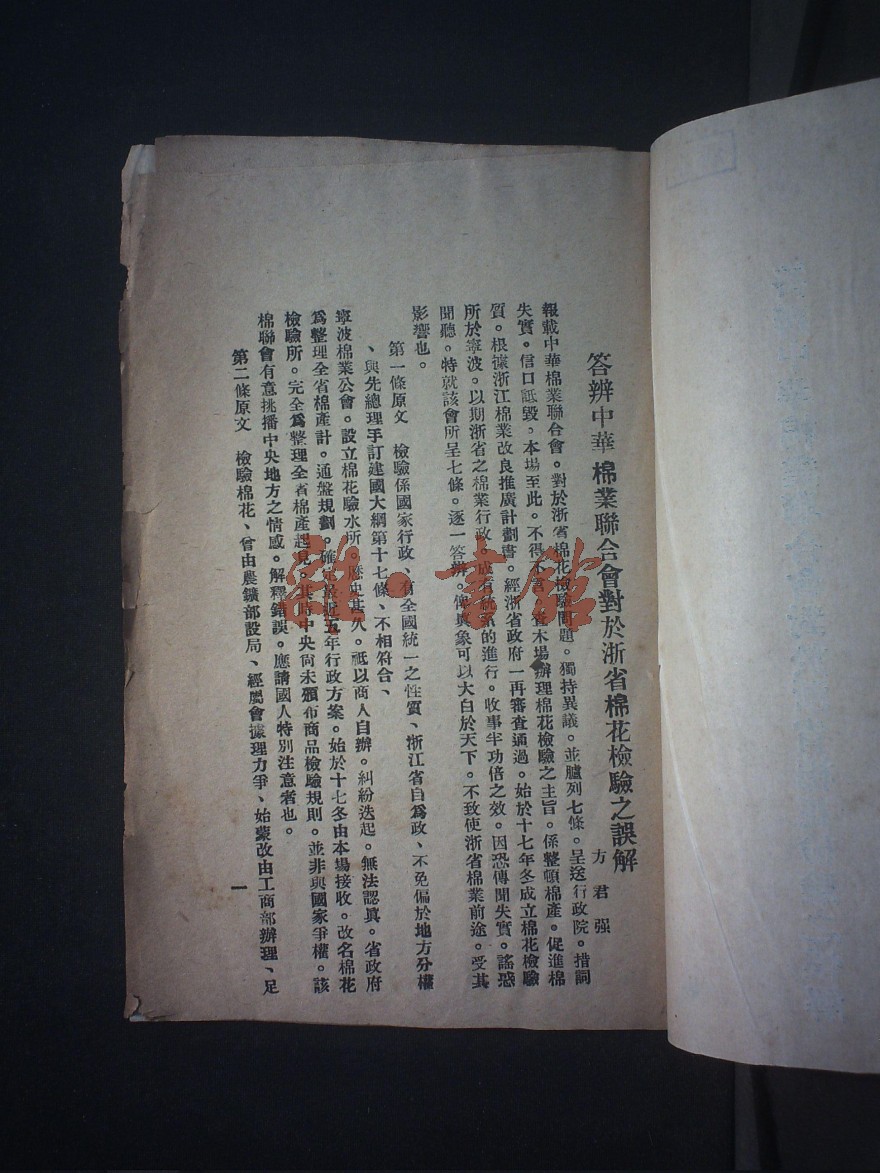 答辨中華棉業聯合會對於浙省棉花檢驗之誤解
方君强
報載中華棉業聯合會。對於浙省棉花檢驗問題。獨持異議。並臚列七條。呈送行政院。措詞
失實。信口詆毀。本場至此。不得不言。查本場辦理棉花檢驗之主旨。係整頓棉產。促進棉
質。根據浙江棉業改良推廣計劃書。經浙省政府一再審查通過。始於十七年冬成立棉花檢驗
所於寧波。以期浙省之棉業行政。成有統系的進行。收事半功倍之效。因恐傳聞失實。謠惑
聞聽。特就該會所呈七條。逐一答辨。俾真象可以大白於天下。不致使浙省棉業前途。受其
影響也。
第一條原文 檢驗係國家行政、有全國統一之性質、浙江省自爲政、不免偏於地方分權
、與先總理手訂建國大綱第十七條、不相符合、
寧波棉業公會。設立棉花驗水所。歷史甚久。祗以商人自辦。糾紛迭起。無法認真。省政府
爲整理全省棉產計。通盤規劃。確定最近五年行政方案。始於十七冬由本場接收。改名棉花
檢驗所。完全爲整理全省棉產起見。其時中央尚未頒布商品檢驗規則。並非與國家爭權。該
棉聯會有意挑播中央地方之情感。解釋錯誤。應請國人特別注意者也。
第二條原文 檢驗棉花、曾由農鑛部設局、經屬會據理力爭、始蒙改由工商部辦理、足
一
雅·書館